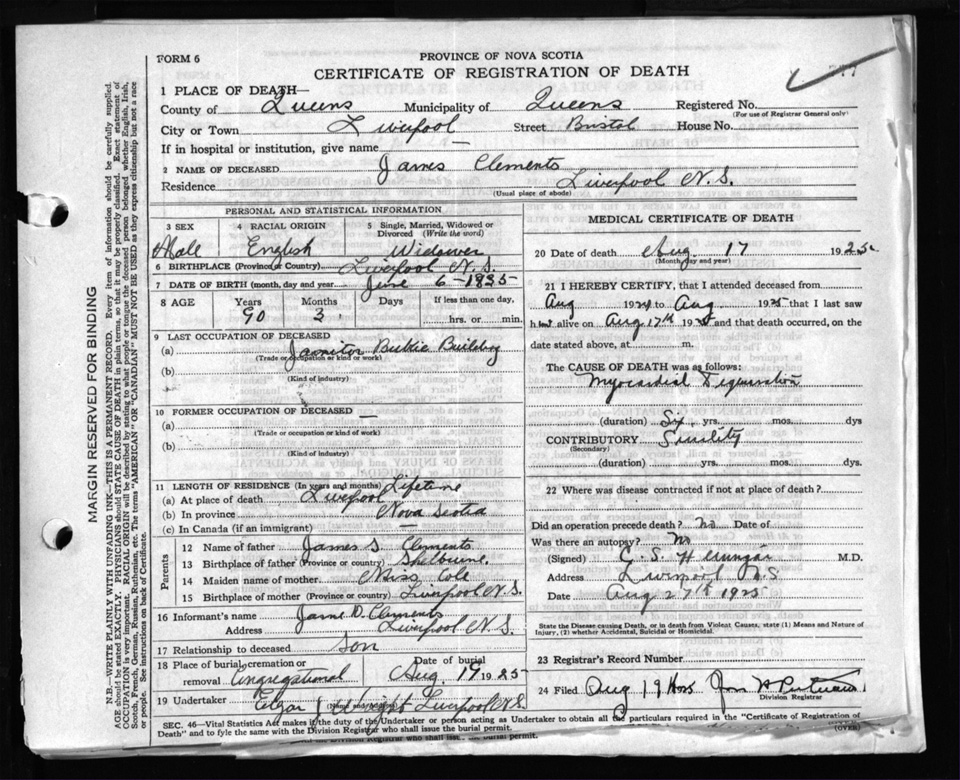 FORM 6
PROVINCE OF NOVA SCOTIA
CERTIFICATE OF REGISTRATION OF DEATH
1 PLACE OF DEATH—
County of Queens Municipality of Queens Registered No.
(For use of Registrar General only)
City or Town Liverpool Street Bristol House No.
If in hospital or institution, give name
2 NAME OF DECEASED James Clements
Residence Liverpool N.S.
(Usual place of abode)
PERSONAL AND STATISTICAL INFORMATION
3 SEX 4 RACIAL ORIGIN 5 Single, Married, Widowed or Divorced (Write the word)
Male English Widower
6 BIRTHPLACE (Province or Country) Liverpool N.S.
7 DATE OF BIRTH (month, day and year) June 6 - 1835
8 AGE Years Months Days If less than one day,
90 3 hrs. or min.
9 LAST OCCUPATION OF DECEASED
(a) Janitor Building
(Trade or occupation or kind of work)
(b)
(Kind of industry)
10 FORMER OCCUPATION OF DECEASED —
(a)
(Trade or occupation or kind of work)
(b)
(Kind of industry)
11 LENGTH OF RESIDENCE (In years and months) Lifetime
(a) At place of death Liverpool
(b) In province Nova Scotia
(c) In Canada (if an immigrant) —
Parents
12 Name of father James S. Clements
13 Birthplace of father (Province or country) Shelburne.
14 Maiden name of mother Miss Cole
15 Birthplace of mother (Province or country) Liverpool N.S.
16 Informant's name D. Clements
Address Liverpool N.S.
17 Relationship to deceased Son
18 Place of burial, cremation or removal Congregational Date of burial Aug. 19 1925
19 Undertaker Wright Liverpool N.S.
MEDICAL CERTIFICATE OF DEATH
20 Date of death Aug. 17 1925
(Month, day and year)
21 I HEREBY CERTIFY, that I attended deceased from
Aug 1924 to Aug 1925 that I last saw
him alive on Aug 17th 1925 and that death occurred, on
date stated above, at m.
The CAUSE OF DEATH was as follows:
Myocardial
(duration) Six yrs. mos. dys
CONTRIBUTORY Senility
(Secondary)
(duration) yrs. mos. dys.
22 Where was disease contracted if not at place of death?
Did an operation precede death? no Date of
Was there an autopsy? no
(Signed) M.D.
Address Liverpool N.S
Date Aug 27th 1925
State the Disease causing Death, or in death from Violent Causes, state (1) Means and Nature of
Injury, (2) whether Accidental, Suicidal or Homicidal.
23 Registrar's Record Number
24 Filed Aug 19
Division Registrar
SEC. 46—Vital Statistics Act makes it the duty of the Undertaker or person acting as Undertaker to obtain all the particulars required in the "Certificate of Registration of
Death" and to fyle the same with the Division Registrar who shall issue the burial permit.
(OVER)
MARGIN RESERVED FOR BINDING
N.B.—WRITE PLAINLY WITH UNFADING INK—THIS IS A PERMANENT RECORD. Every item of information should be carefully supplied.
AGE should be stated EXACTLY. PHYSICIANS should STATE CAUSE OF DEATH in plain terms, so that it may be properly classified. Exact statement of
OCCUPATION is very important. RACIAL ORIGIN will be described by stating to what people or tongue the deceased person belonged whether English, Irish,
Scotch, French, German, Russian, Ruthenian, etc. The terms "AMERICAN" OR "CANADIAN" MUST NOT BE USED as they express citizenship but not a race
of people. See instructions on back of Certificate.